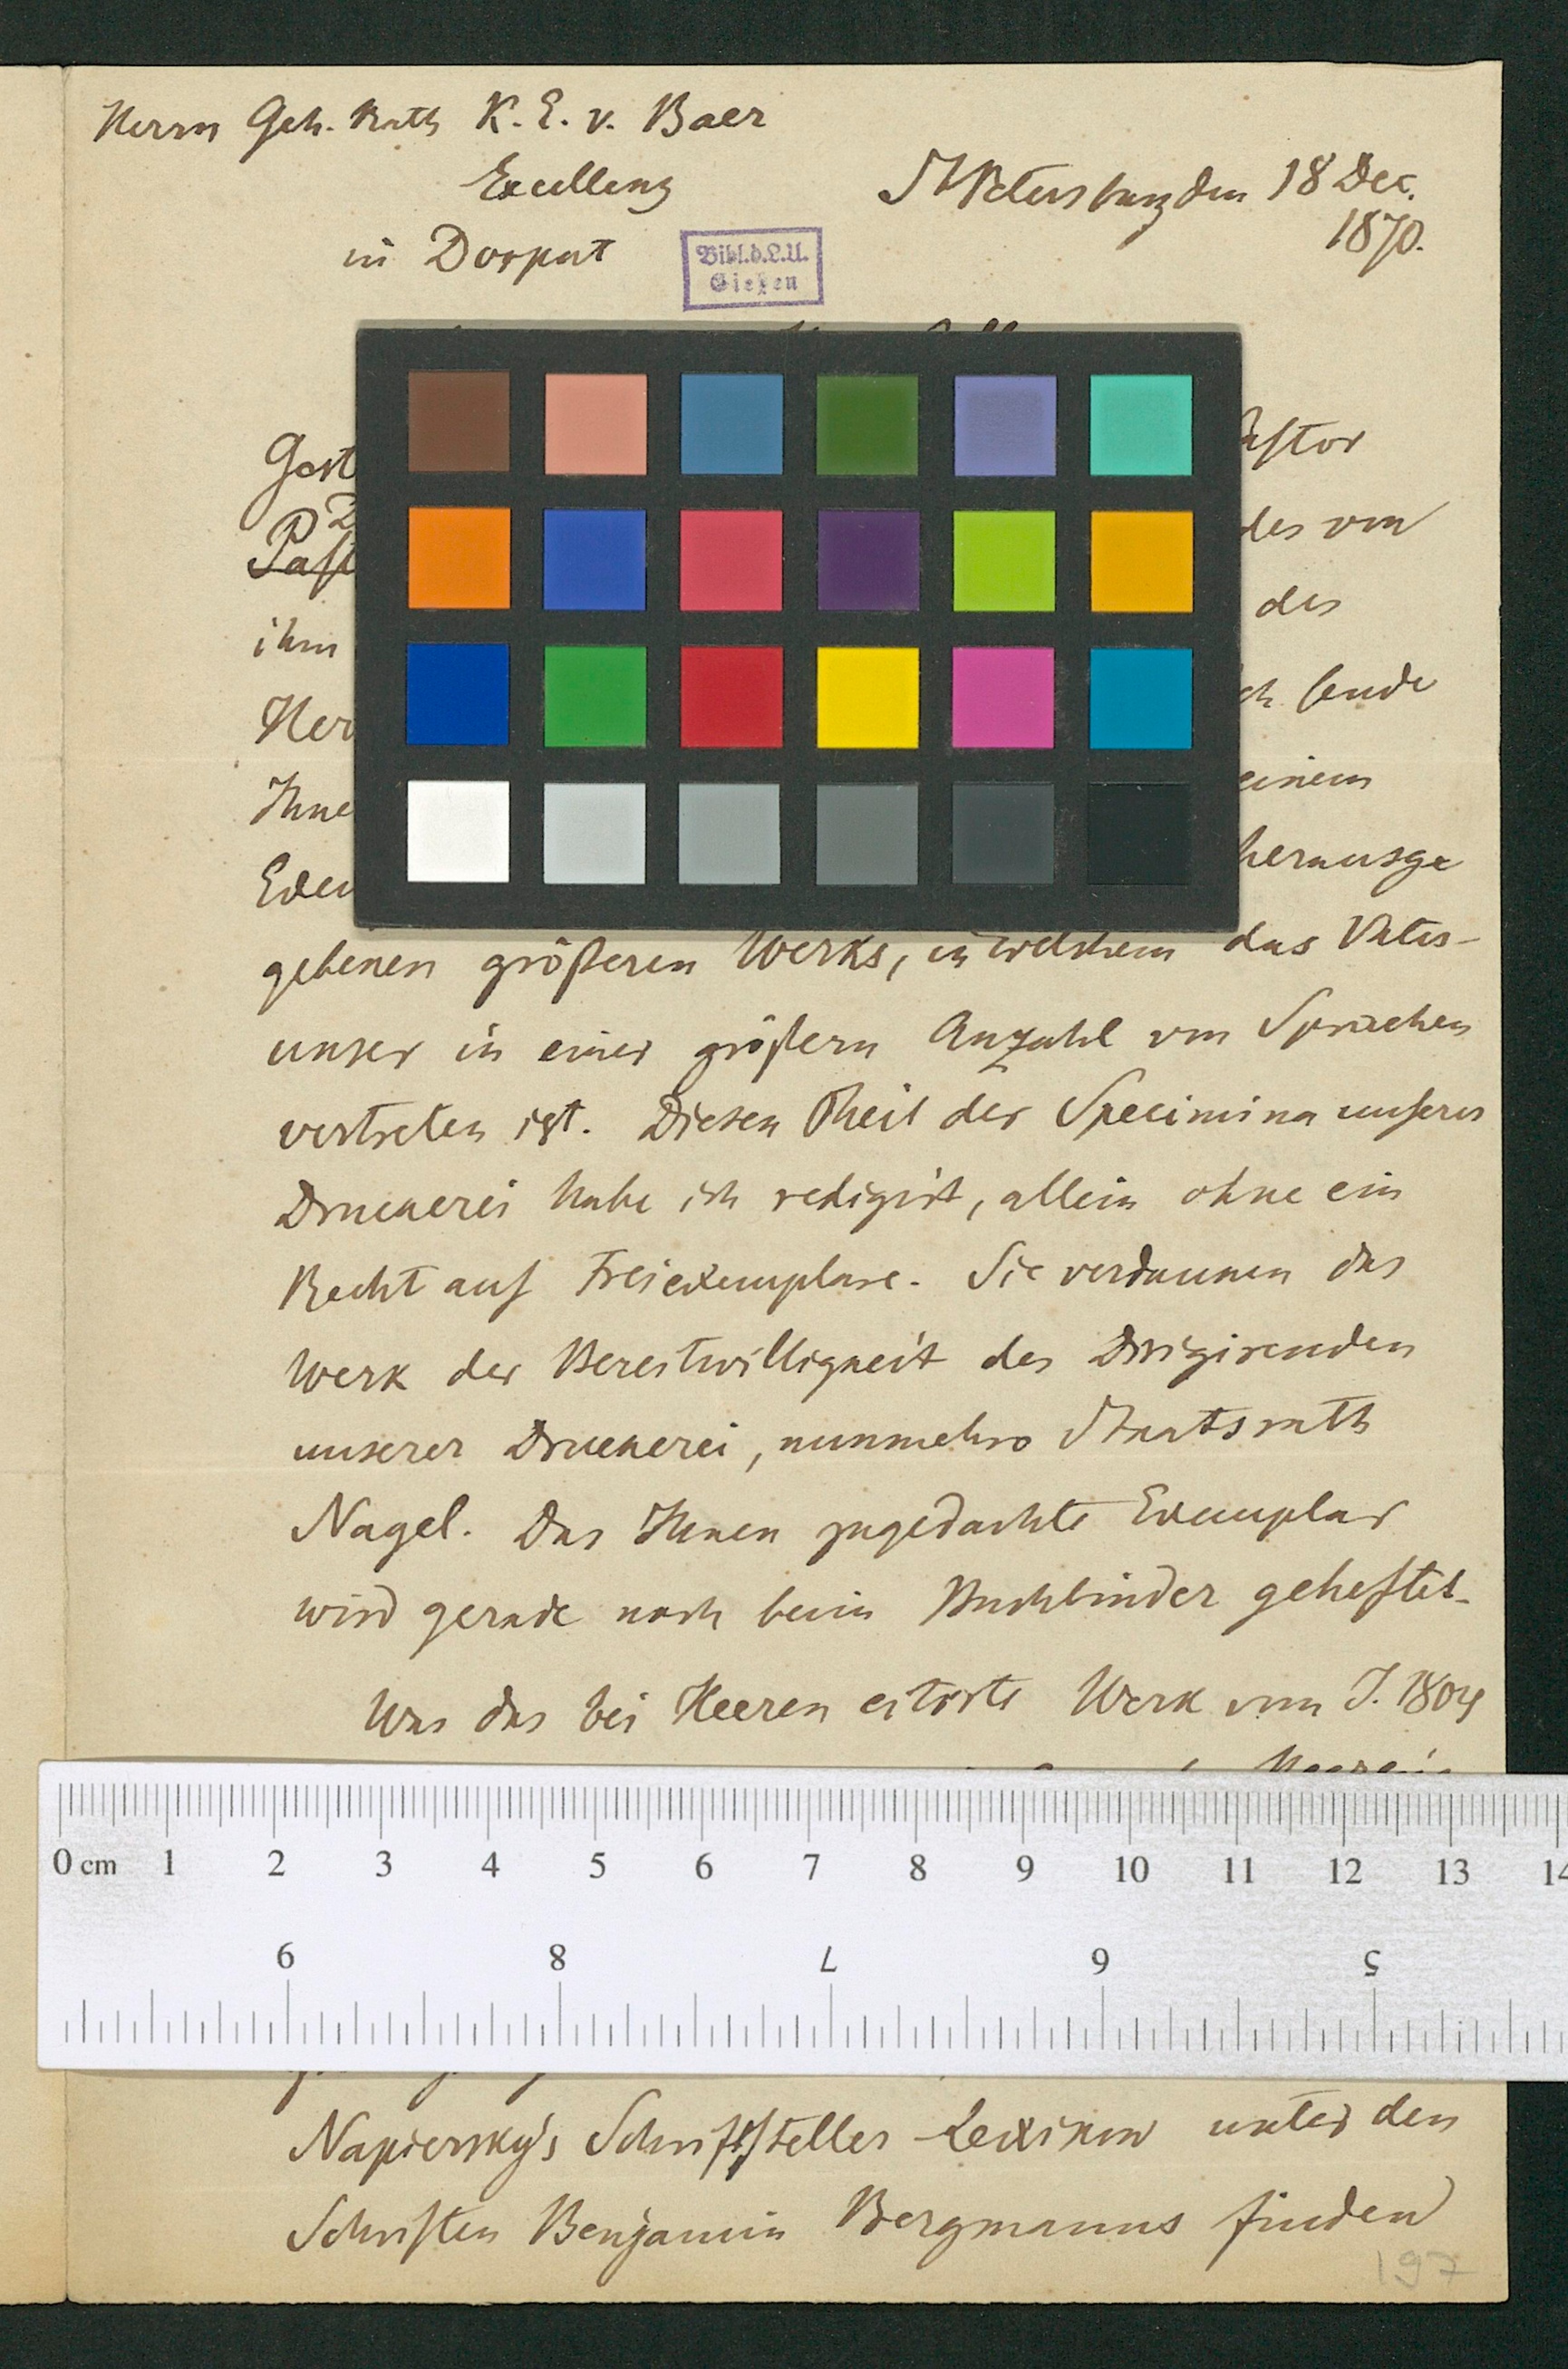 Herrn Geh. Rath K. E. v. Baer
Excellenz
in Dorpat
St Petersburg den 18 Dec.
1870.
Bibl.d.L.U.
Gießen
des von
ihm
des
sende
einem
herausge
gebenen größeren Werks, in welchem das Vater-
unser in einer größern Anzahl von Sprachen
vertreten ist. Diesen Theil der Specimina unserer
Druckerei habe ich redigirt, allein ohne ein
Recht auf Freiexemplare. Sie verdanken das
Werk der Bereitwilligkeit des Dirigirenden
unserer Druckerei, nunmehro Staatsrath
Nagel. Das Ihnen zugedachte Exemplar
wird gerade noch beim Buchbinder geheftet.
Was das bei Heeren citirte Werk vom J. 1804
0 cm 1 2 3 4 5 6 7 8 9 10 11 12 13 14
9 8 7 6 5
Napiersky's Schriftsteller-Lexikon unter den
Schriften Benjamin Bergmanns finden
197